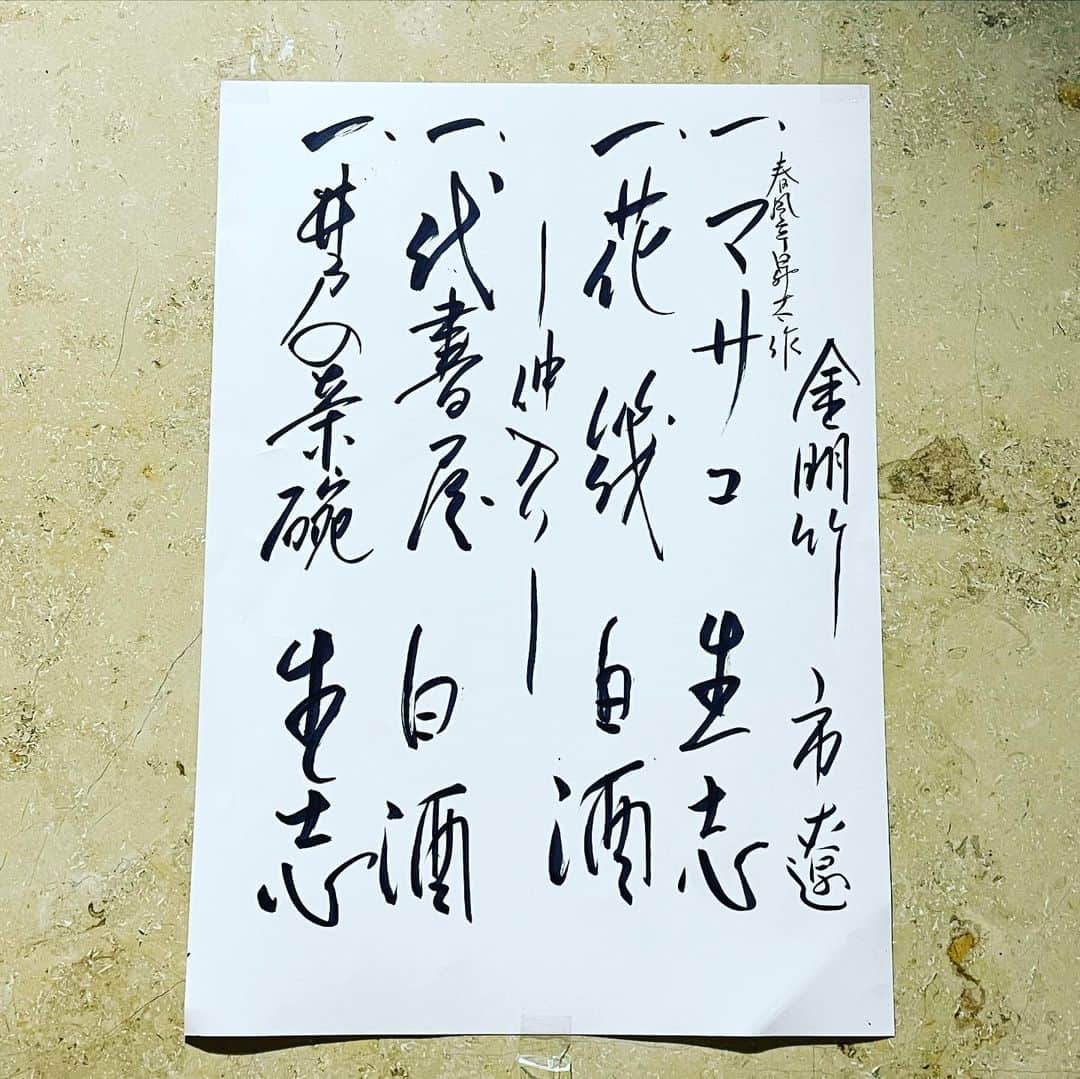 金明竹 市遼
春風亭昇太作
一、マサコ 生志
一、花筏 白酒
―仲入り―
一、代書屋 白酒
一、井戸の茶碗 生志